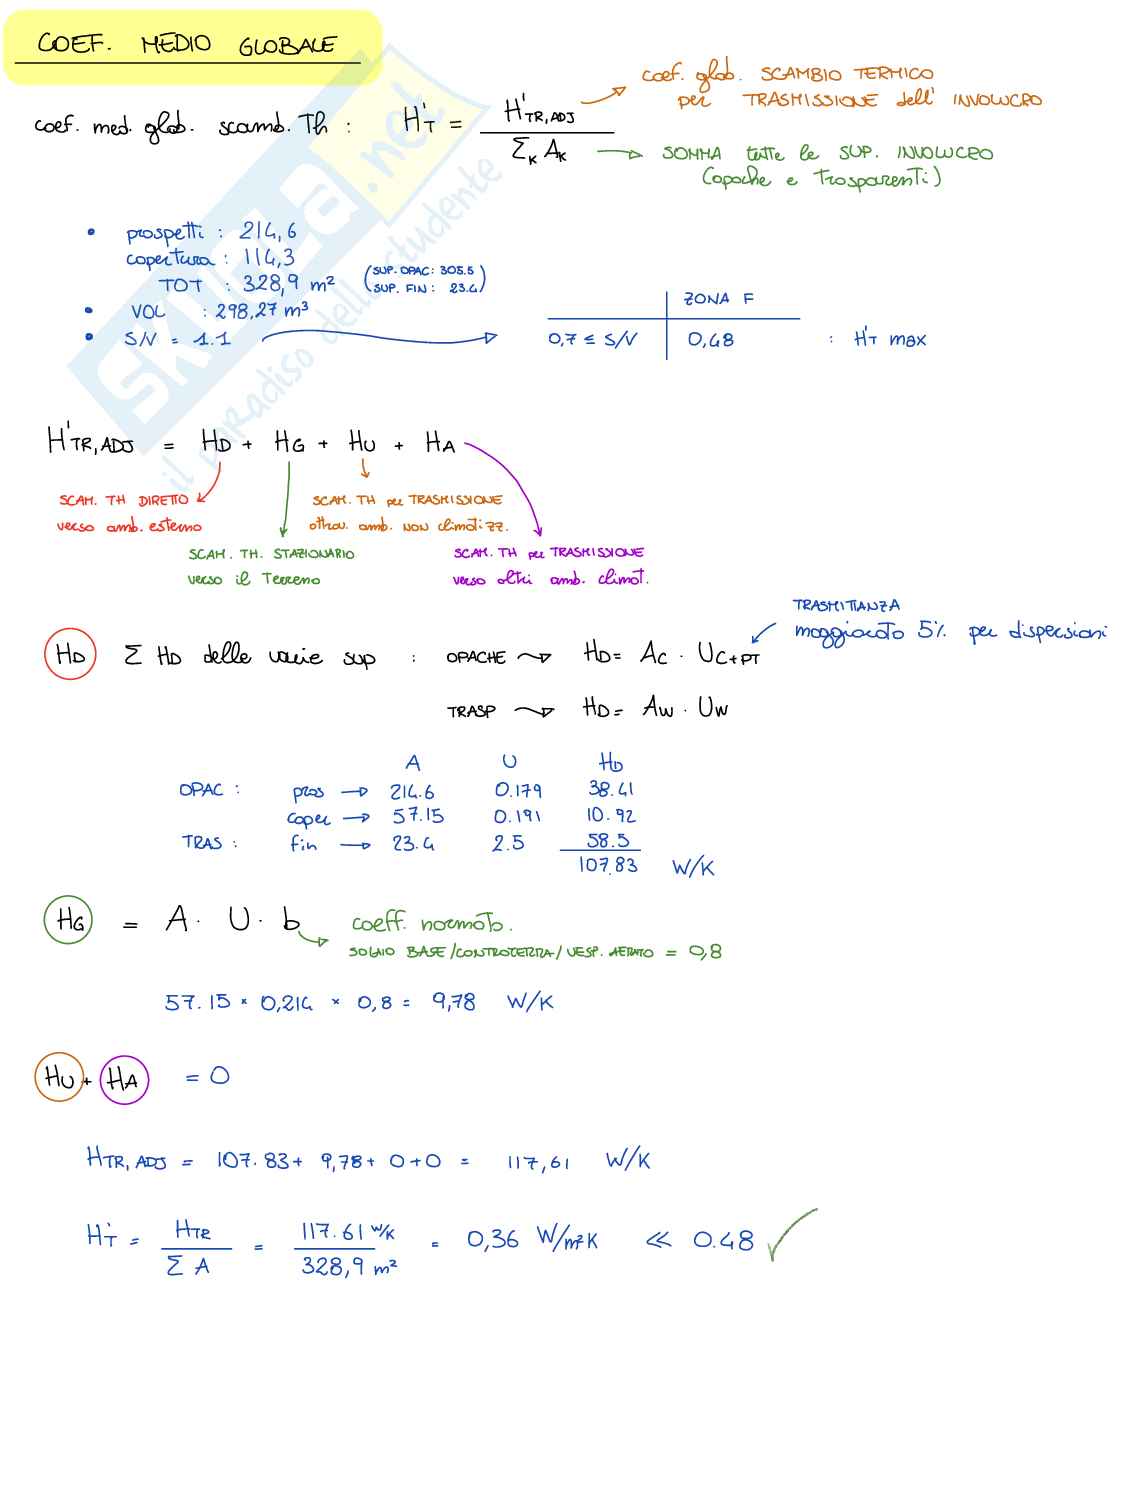 COEF. MEDIO GLOBALE
coef. med. glob. scamb. Th : H'T = H'TR,ADJ / ΣK AK
coef. glob. SCAMBIO TERMICO
per TRASMISSIONE dell' INVOLUCRO
SOMMA tutte le SUP. INVOLUCRO
(opache e trasparenti)
• prospetti : 214,6
copertura : 114,3
TOT : 328,9 m²
(SUP. OPAC: 305.5
SUP. FIN : 23.4)
• VOL : 298,27 m³
• S/V = 1.1
ZONA F
0,7 ≤ S/V 0,48 : H'T max
H'TR,ADJ = HD + HG + HU + HA
SCAM. TH DIRETTO
verso amb. esterno
SCAM. TH per TRASMISSIONE
attrav. amb. NON climatizz.
SCAM. TH. STAZIONARIO
verso il Terreno
SCAM. TH per TRASMISSIONE
verso altri amb. climat.
TRASMITTANZA
maggiorato 5% per dispersioni
HD Σ HD delle varie sup : OPACHE → HD = AC · UC+PT
TRASP → HD = AW · UW
A U HD
OPAC : pros → 214.6 0.179 38.41
coper → 57.15 0.191 10.92
TRAS : fin → 23.4 2.5 58.5
107.83 W/K
HG = A · U · b coeff. normato.
SOLAIO BASE/CONTROTERRA/VESP. AERATO = 0,8
57.15 × 0,214 × 0,8 = 9,78 W/K
HU + HA = 0
HTR,ADJ = 107.83 + 9,78 + 0 + 0 = 117,61 W/K
H'T = HTR / Σ A = 117.61 W/K / 328,9 m² = 0,36 W/m²K ≪ 0.48 ✓
SKUOLA.net
il paradiso dello studente